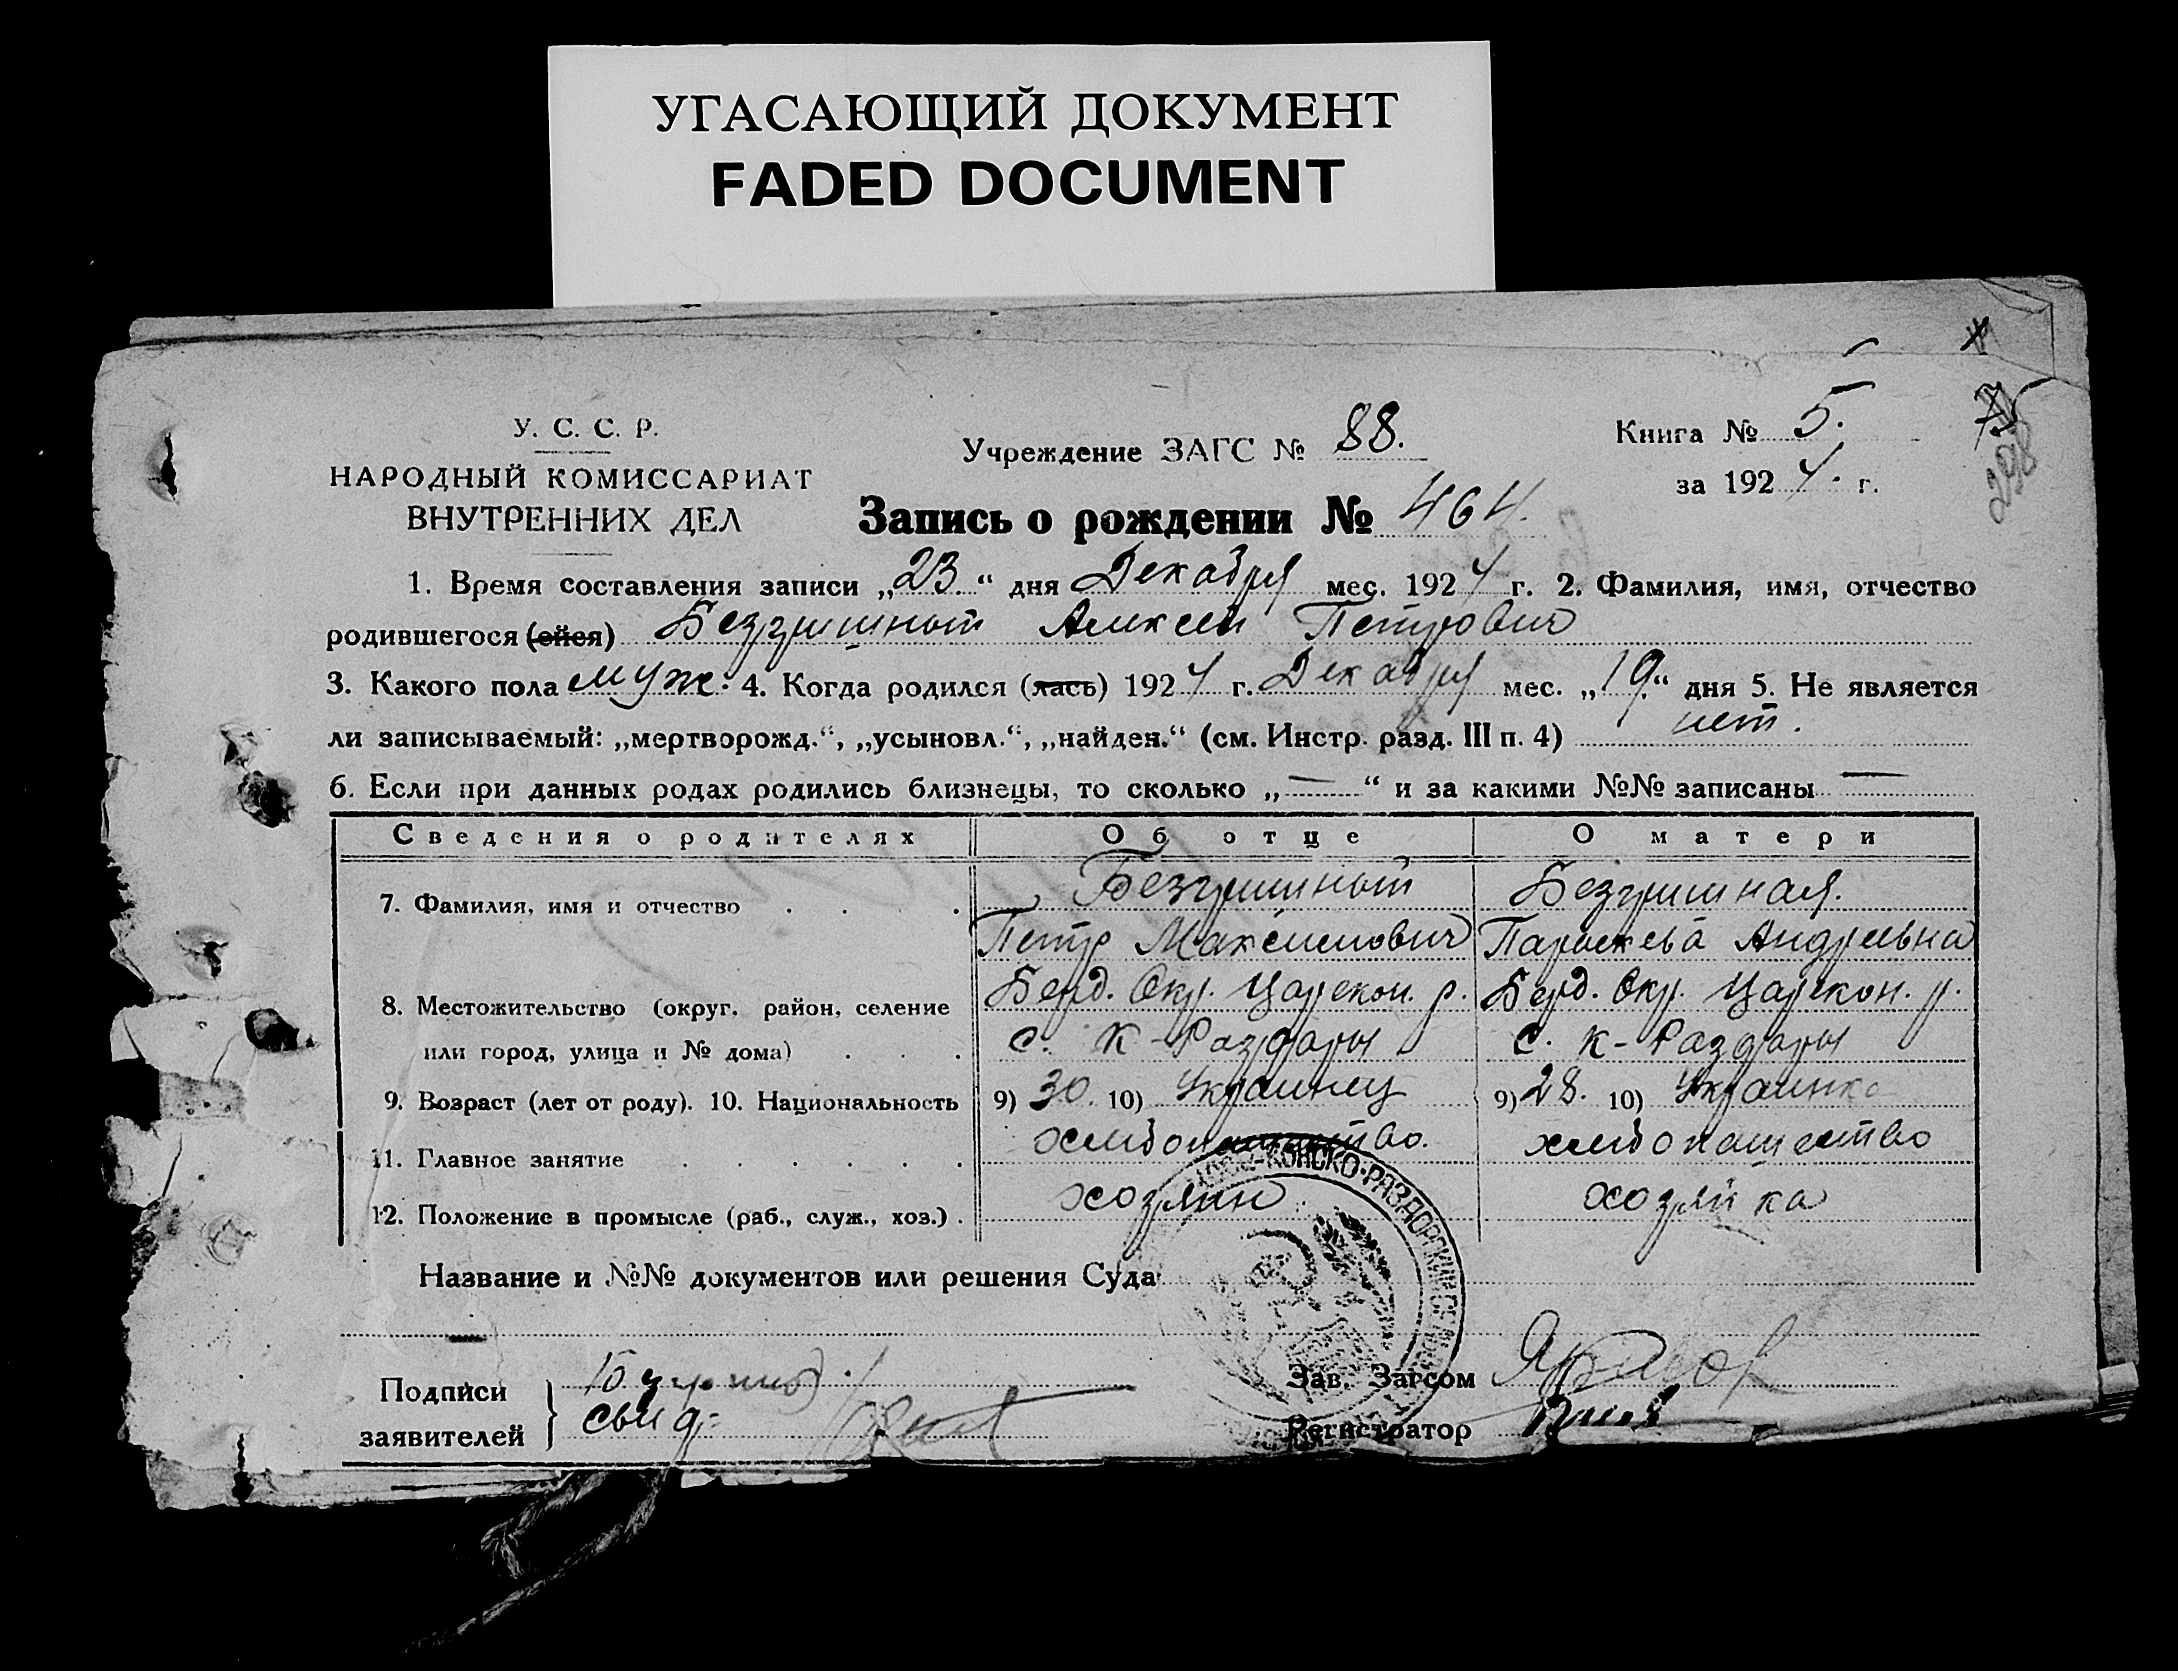 УГАСАЮЩИЙ ДОКУМЕНТ
FADED DOCUMENT
У. С. С. Р.
НАРОДНЫЙ КОМИССАРИАТ
ВНУТРЕННИХ ДЕЛ
Учреждение ЗАГС № 88.
Книга № 5.
за 1924. г.
75
298
Запись о рождении № 464.
1. Время составления записи „23.“ дня Декабря мес. 1924 г. 2. Фамилия, имя, отчество
родившегося (ейся) Алексей Петрович
3. Какого пола муж. 4. Когда родился (лась) 1924 г. Декабря мес. „19.“ дня 5. Не является
ли записываемый: „мертворожд.“, „усыновл.“, „найден.“ (см. Инстр. разд. III п. 4) нет.
6. Если при данных родах родились близнецы, то сколько „—“ и за какими №№ записаны —
Сведения о родителях Об отце О матери
7. Фамилия, имя и отчество
Петр Максимович Параскева Андреевна
8. Местожительство (округ, район, селение Берд. Окр. Царекон. р. Берд. Окр. Царекон. р.
или город, улица и № дома) с. К-Раздоры с. К-Раздоры
9. Возраст (лет от роду). 10. Национальность 9) 30. 10) Украинец 9) 28. 10) Украинка
11. Главное занятие хлебопашество. хлебопашество
12. Положение в промысле (раб., служ., хоз.) хозяин хозяйка
Название и №№ документов или решения Суда
Подписи
заявителей
свид.
Зав. Загсом
Регистратор